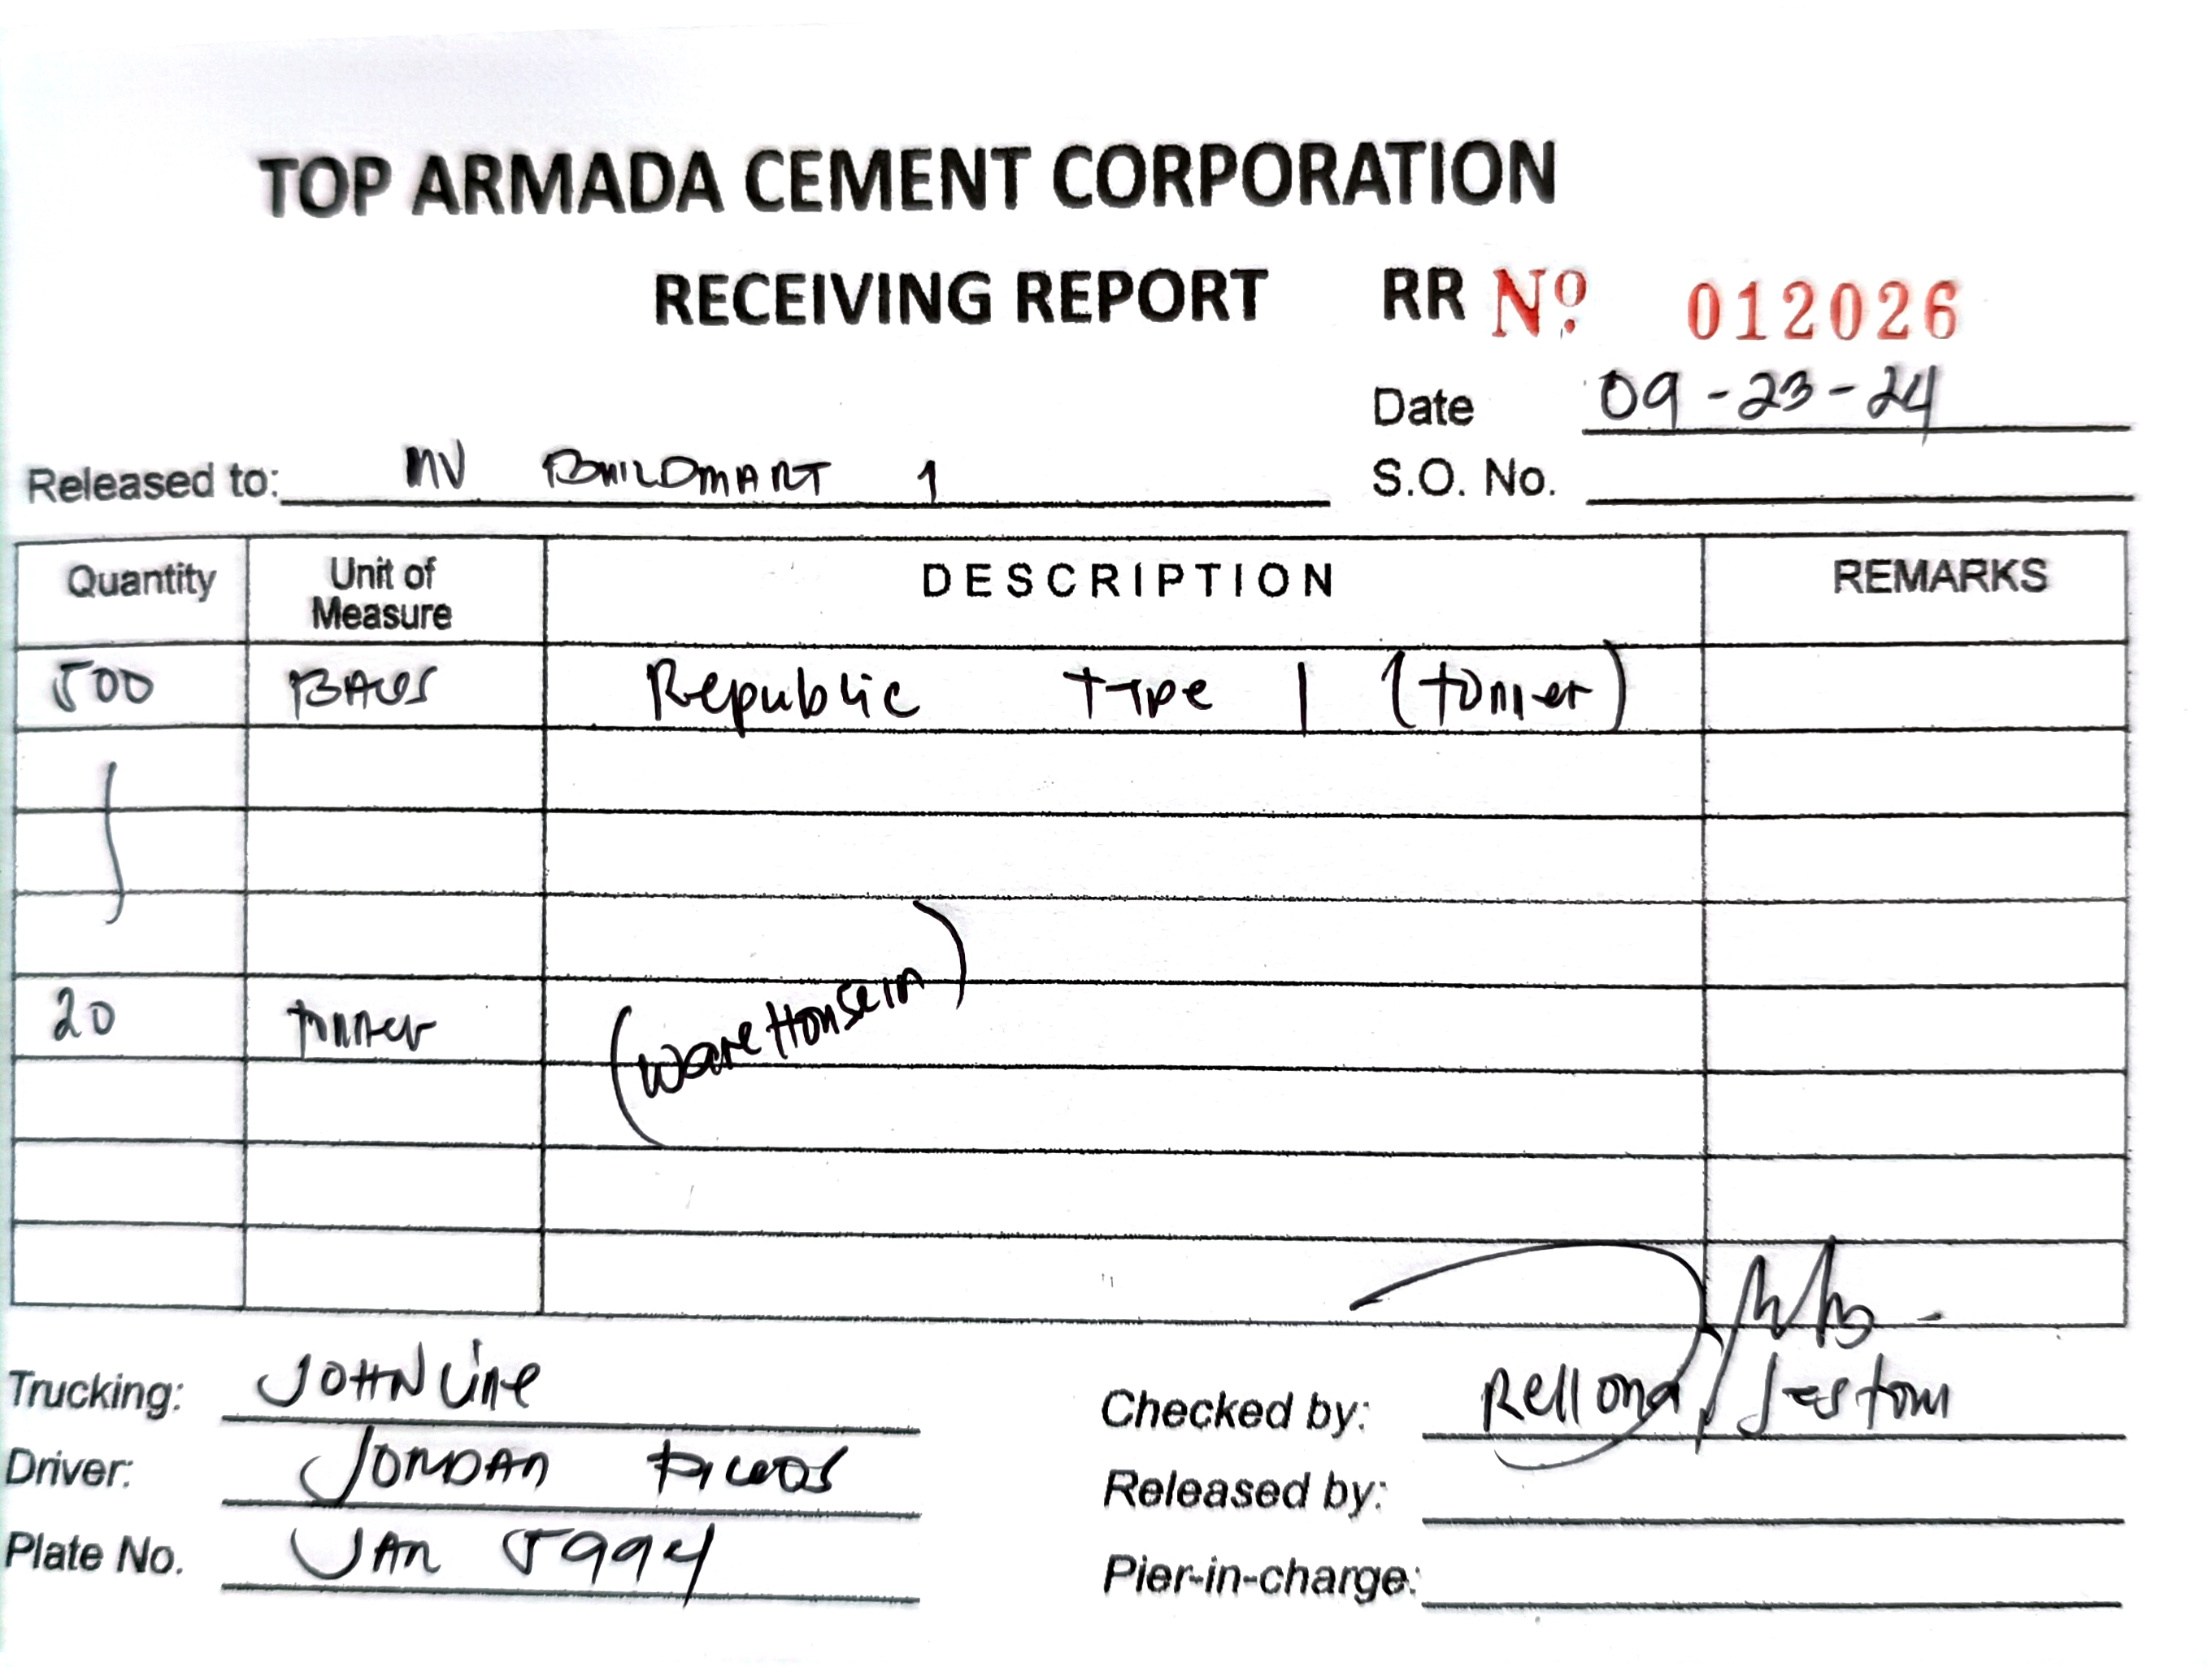 TOP ARMADA CEMENT CORPORATION
RECEIVING REPORT RR Nº 012026
Date 09-23-24
Released to: MV BUILDMART 1 S.O. No.
Quantity Unit of Measure DESCRIPTION REMARKS
500 BAGS Republic Type 1 (tonner)
20 tonner (WareHousein)
Trucking: JOHNLine Checked by: Rellona / Jestoni
Driver: JORDAN Released by:
Plate No. JAR 5994 Pier-in-charge: